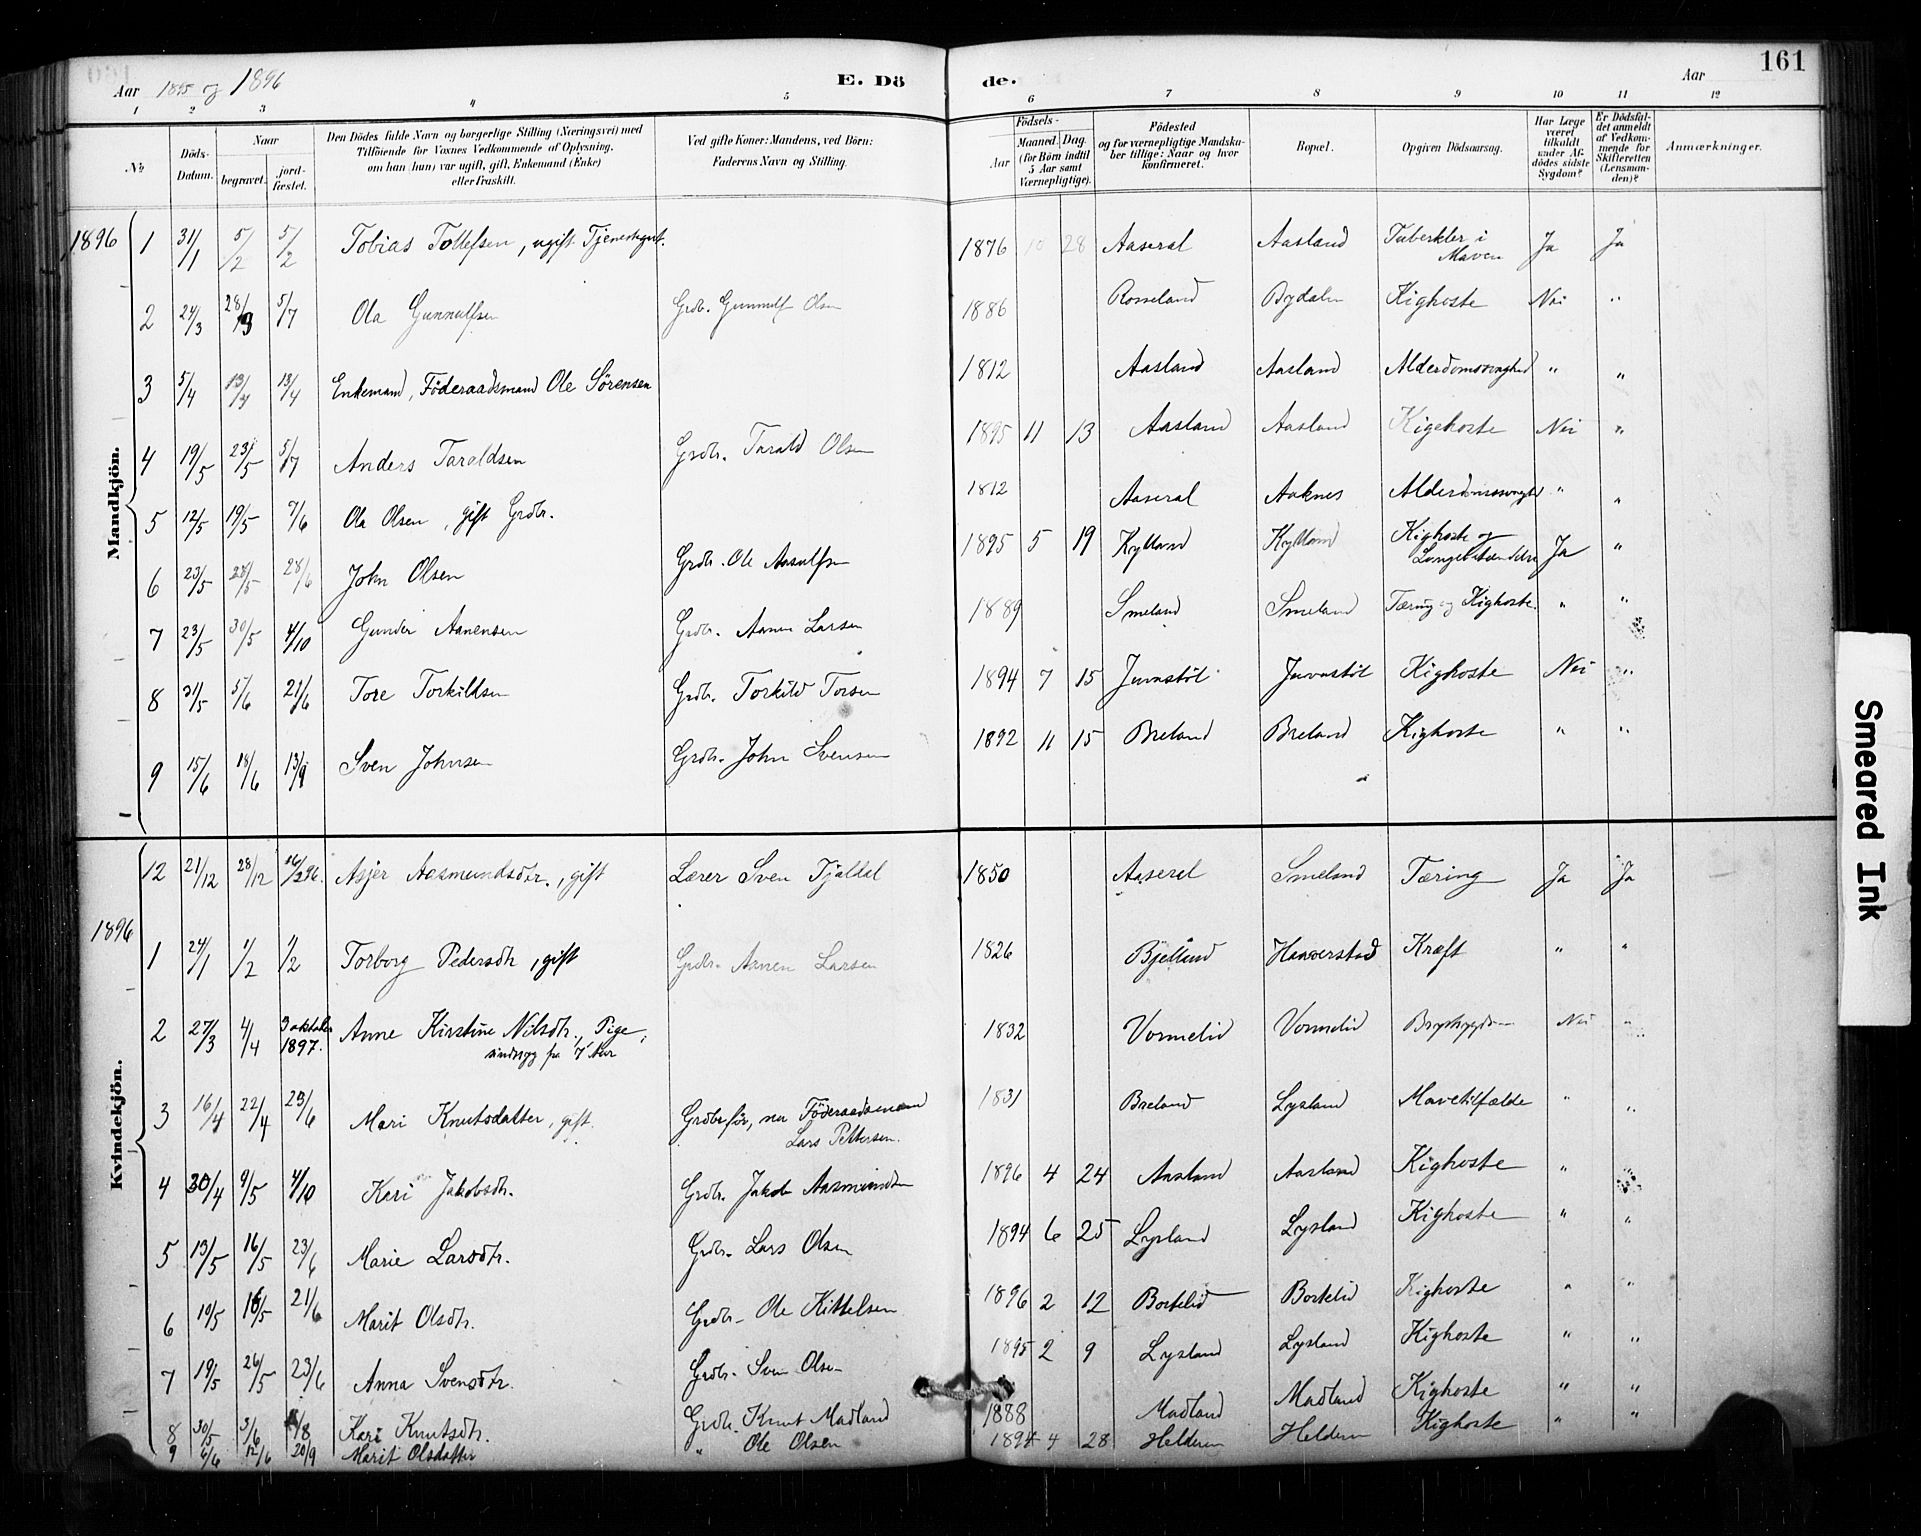 Aar 1895 og 1896 E. Dö de. Aar 161
1 2 3 4 5 6 7 8 9 10 11 12
No
Döds-Datum.
Naar
begravet.
jord-fæstet.
Den Dödes fulde Navn og borgerlige Stilling (Næringsvei) med
Tilföiende for Voxnes Vedkommende af Oplysning,
om han (hun) var ugift, gift, Enkemand (Enke)
eller fraskilt.
Ved gifte Koner: Mandens, ved Börn:
Faderens Navn og Stilling.
Födsels-
Aar
Maaned. Dag.
(for Börn indtil
5 Aar samt
Værnepligtige).
Födested
og for værnepligtige Mandskaber tillige: Naar og hvor
konfirmeret.
Bopæl.
Opgiven Dödsaarsag.
Har Læge
været
tilkaldt
under Afdödes sidste
Sygdom?
Er Dödsfaldet anmeldt
af Vedkommende for
Skifteretten
(Lensmanden)?
Anmærkninger.
Mandkjön.
1896 1 31/1 5/2 5/2 Tobias Tollefsen, ugift Tjenestegut. 1876 10 28 Aaseral Aasland Tuberkler i Maven Ja Ja
2 24/3 28/3 5/7 Ola Gunnulfsen Grdbr. Gunnulf Olsen 1886 Rosseland Bydalen Kighoste Nei "
3 5/4 13/4 13/4 Enkemand, Föderaadsmand Ole Sörensen 1812 Aasland Aasland Alderdomssvaghed " "
4 19/5 23/5 5/7 Anders Taraldsen Grdbr. Tarald Olsen 1895 11 13 Aasland Aasland Kigehoste Nei "
5 12/5 19/5 7/6 Ola Olsen, gift Grdbr. 1812 Aaseral Aaknes Alderdomssvaghed " "
6 23/5 28/5 28/6 John Olsen Grdbr. Ole Aasulfsen 1895 5 19 Kylland Kylland Kighoste og Lungebetændelse Ja "
7 23/5 30/5 4/10 Gunder Aanensen Grdbr. Aanen Larsen 1889 Smeland Smeland Tæring og Kighoste. " "
8 31/5 5/6 21/6 Tore Torkildsen Grdbr. Torkild Torsen 1894 7 15 Juvnstöl Juvnstöl Kighoste Nei "
9 15/6 18/6 13/9 Sven Johnsen Grdbr. John Svensen 1892 11 15 Breland Breland Kighoste " "
Kvindekjön.
12 21/12 28/12 16/2 96. Asjer Aasmundsdtr., gift Lærer Sven Tjaldal 1850 Aaseral Smeland Tæring Ja Ja
1896 1 24/1 1/2 1/2 Torborg Pedersdtr, gift Grdbr. Aanen Larsen 1826 Bjelland Haaverstad Kræft " "
2 27/3 4/4 3 oktober 1897. Anne Kirstine Nilsdtr., Pige, sindssyg fra 7 Aar 1832 Vormelid Vormelid Brystsygdom Nei "
3 16/4 22/4 23/6 Mari Knutsdatter, gift. Grdbr för, nu Föderaadsmand Lars Pettersen. 1831 Breland Lysland Mavetilfælde " "
4 30/4 9/5 4/10 Kari Jakobsdtr. Grdbr. Jakob Aasmundsen 1896 4 24 Aasland Aasland Kighoste " "
5 13/5 16/5 23/6 Marie Larsdtr. Grdbr. Lars Olsen 1894 6 25 Lysland Lysland Kighoste " "
6 10/5 16/5 21/6 Marit Olsdtr. Grdbr. Ole Kittelsen 1896 2 12 Bortelid Bortelid Kighoste " "
7 19/5 26/5 23/6 Anna Svensdtr. Grdbr. Sven Olsen 1895 2 9 Lysland Lysland Kighoste " "
8 30/5 3/6 /8 Kari Knutsdtr. Grdbr. Knut Madland 1888 Madland Madland Kighoste " "
9 6/6 12/6 20/9 Marit Olsdatter " Ole Olsen 1894 4 28 Helderen Helderen Kighoste " "
Smeared Ink